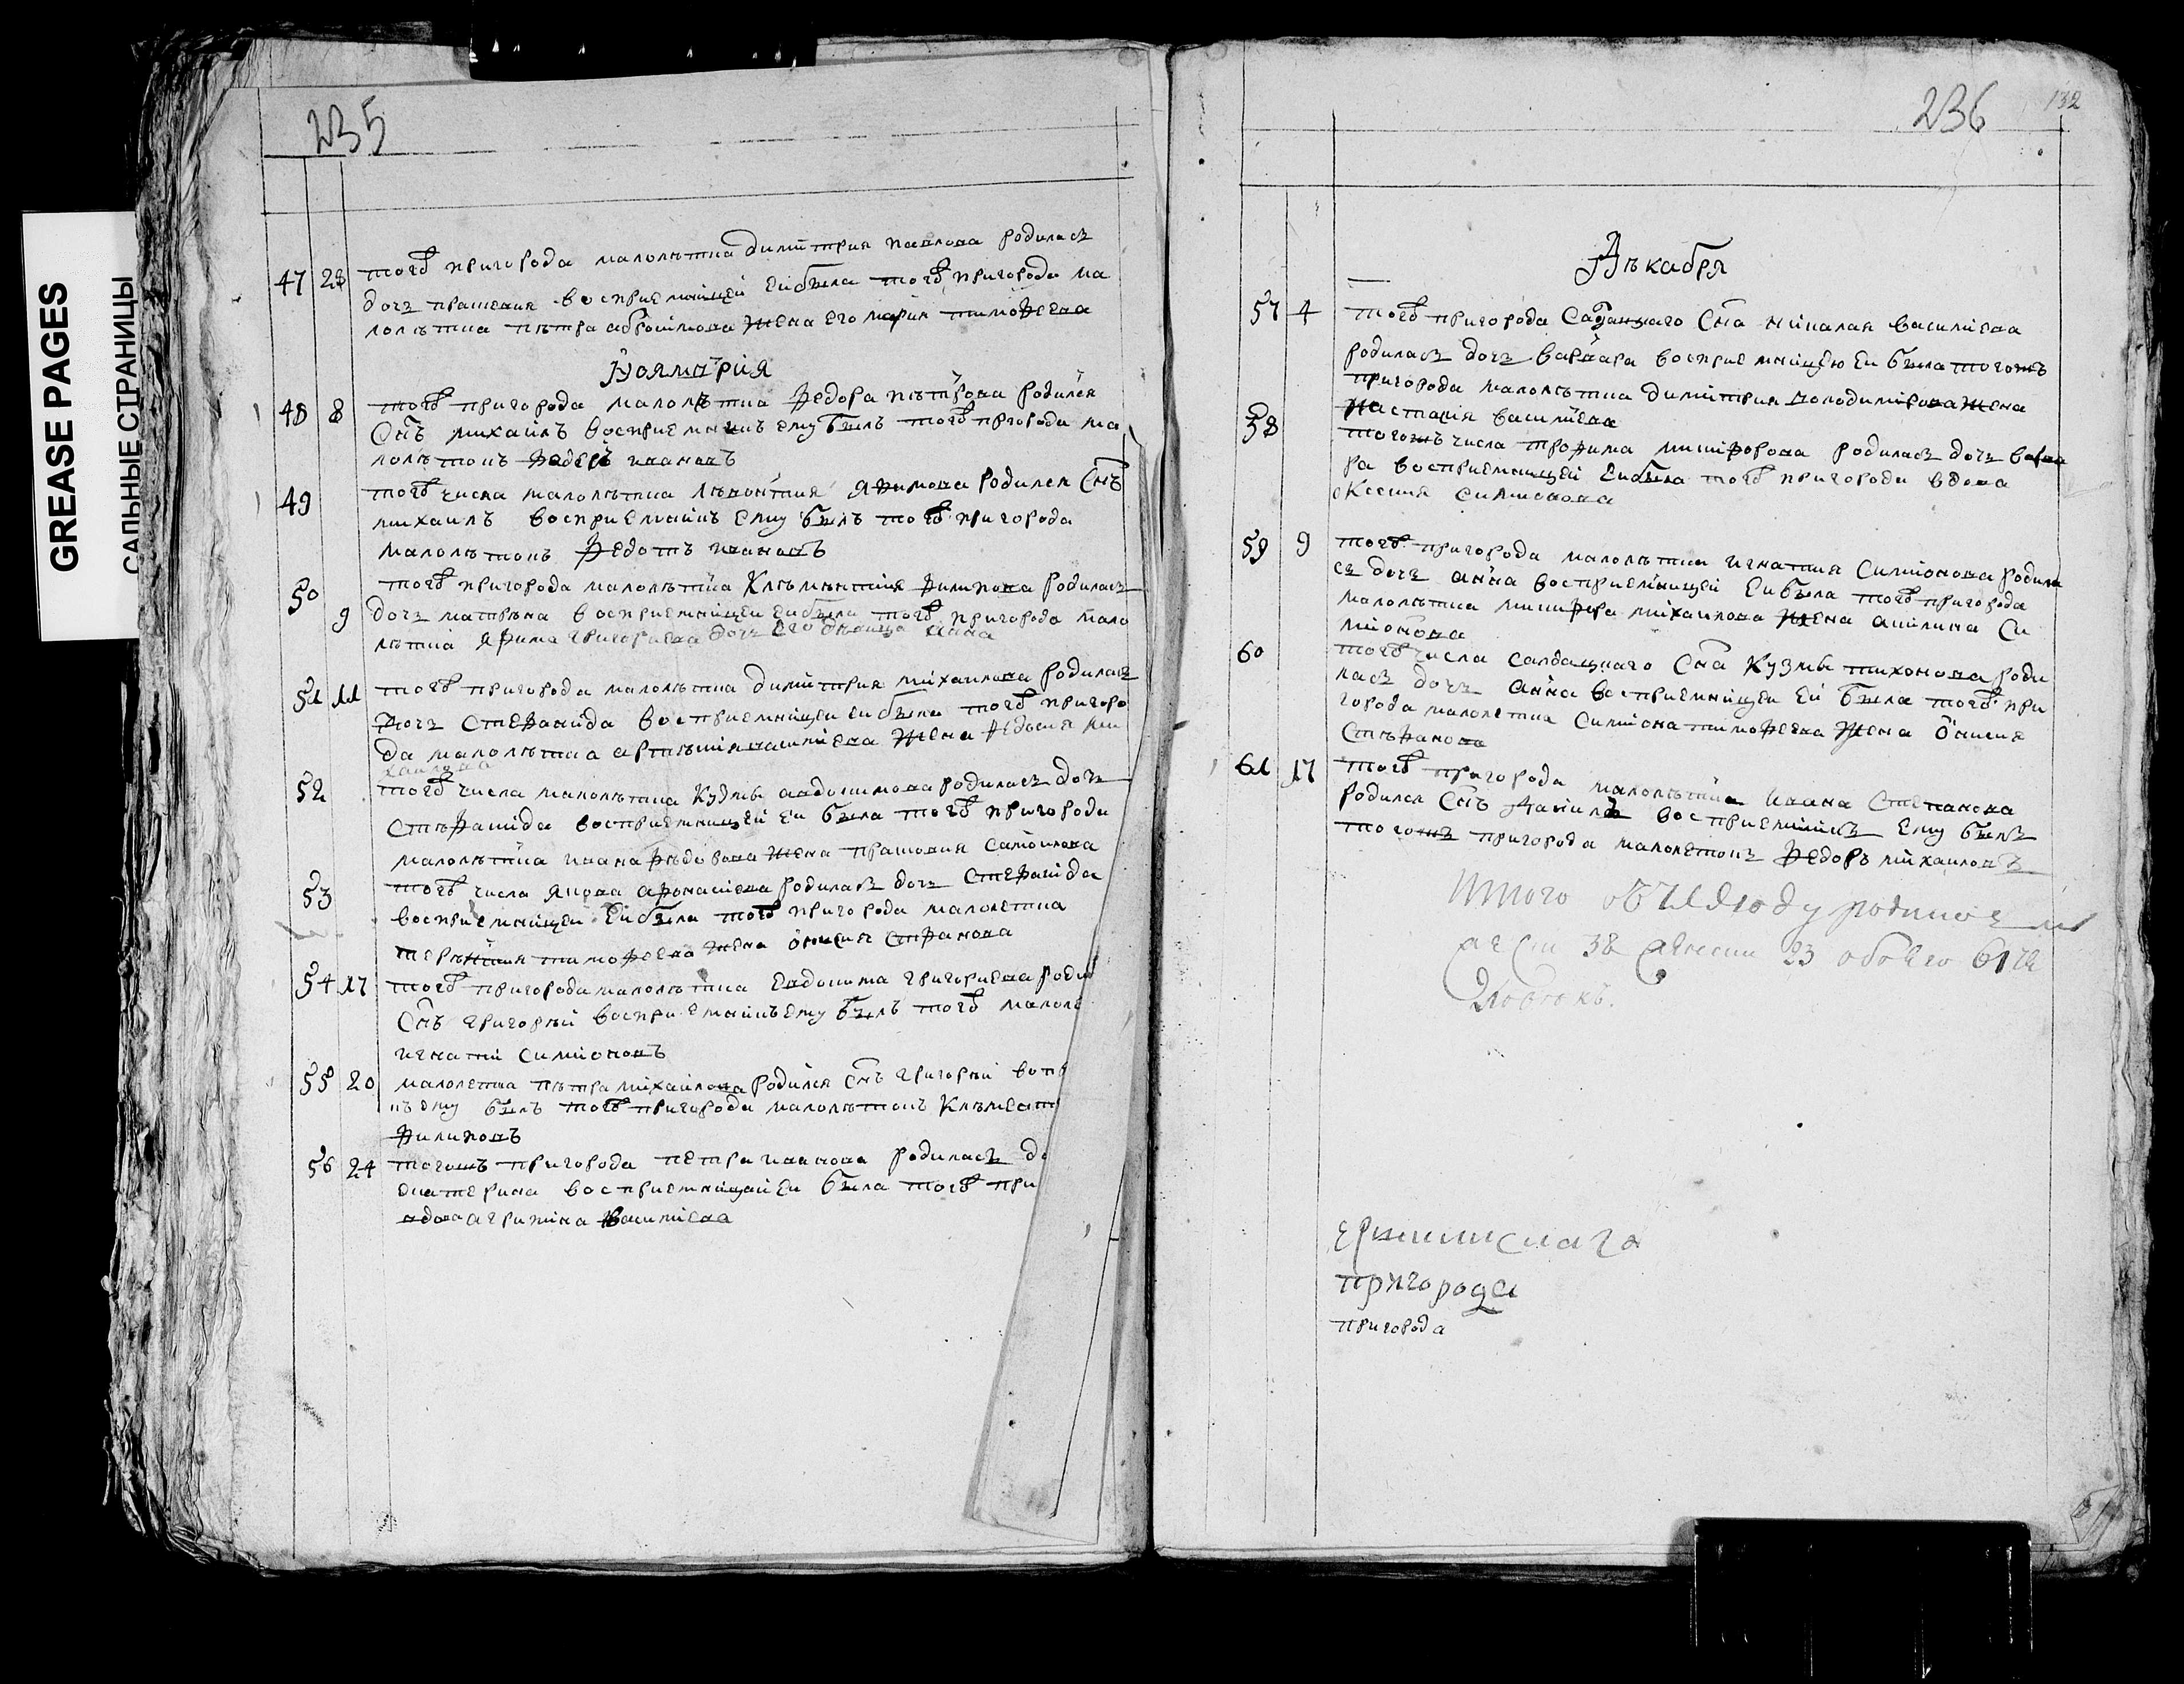 GREASE PAGES
САЛЬНЫЕ СТРАНИЦЫ
235
47 28 тогож пригорода малолѣтка димитрия павлова родилась
дочь прасковия восприемницеи еи была тогож пригорода ма
лолѣтка пѣтра аброѡимова жена его мария тимоѳеева
Ноямврия
48 8 тогож пригорода малолѣтка Ѳедора пѣтрова родился
Снъ михаилъ восприемникъ ему былъ тогож пригорода ма
лолѣтокъ Ѳедоръ ивановъ
49 тогож числа малолѣтка лѣвонтия якимова родился Снъ
михаилъ восприемникъ ему былъ тогож пригорода
малолѣтокъ Ѳедотъ ивановъ
50 9 тогож пригорода малолѣтка Клѣмѣнтия Филипова родилась
дочь матрѣна восприемницеи еи была тогож пригорода мало
лѣтка якима григориева дочь его девица анна
51 11 тогож пригорода малолѣтка димитрия михаилова родилась
дочь Стефанида восприемницеи еи была тогож пригоро
да малолѣтка артѣмия василиева жена Ѳедосия ми
хаилова
52 тогож числа малолѣтка Кузмы авдокимова родилась дочь
Стѣфанида восприемницеи еи была тогож пригорода
малолѣтка ивана Ѳѣдорова жена прасковия Самоилова
53 тогож числа якова афонасиева родилась дочь Стефанида
восприемницеи еи была тогож пригорода малолетка
терѣнтия тимоѳеева жена онисия Стефанова
54 17 тогож пригорода малолѣтка Евдокима григориева роди
Снъ григорий восприемникъ ему былъ тогож малоле
игнатий симионовъ
55 20 малолетка пѣтра михаилова родился снъ григорий
къ ему былъ тогож пригорода малолѣтокъ Клѣмент
Филиповъ
56 24 тогожъ пригорода петра иванова родилась до
екатерина восприемницеи еи была тогож при
вдова агрипина василиева
236
132
Дѣкабря
57 4 тогож пригорода Салдацкаго Сна николая василиева
родилась дочь варвара восприемницею еи была тогожъ
пригорода малолѣтка димитрия володимирова жена
настасия василиева
58 тогожъ числа трофима никифорова родилась дочь варва
ра восприемницеи еи была тогож пригорода вдова
Ксения симионова
59 9 тогож пригорода малолѣтка игнатия Симионова родила
сь дочь анна восприемницеи еи была тогож пригорода
малолѣтка никифора михаилова жена акилина Си
мионова
60 тогож числа салдацкаго Сна Кузмы тихонова роди
лась дочь анна восприемницеи еи была тогож при
города малолетка Симиона тимоѳеева жена онисия
Стѣфанова
61 17 тогож пригорода малолѣтка ивана Степанова
родился Снъ даниилъ восприемникъ ему былъ
тогожъ пригорода малолетокъ Ѳедоръ михаиловъ
Итого году родилось
38 23 обоего 61
пригорода
пригорода